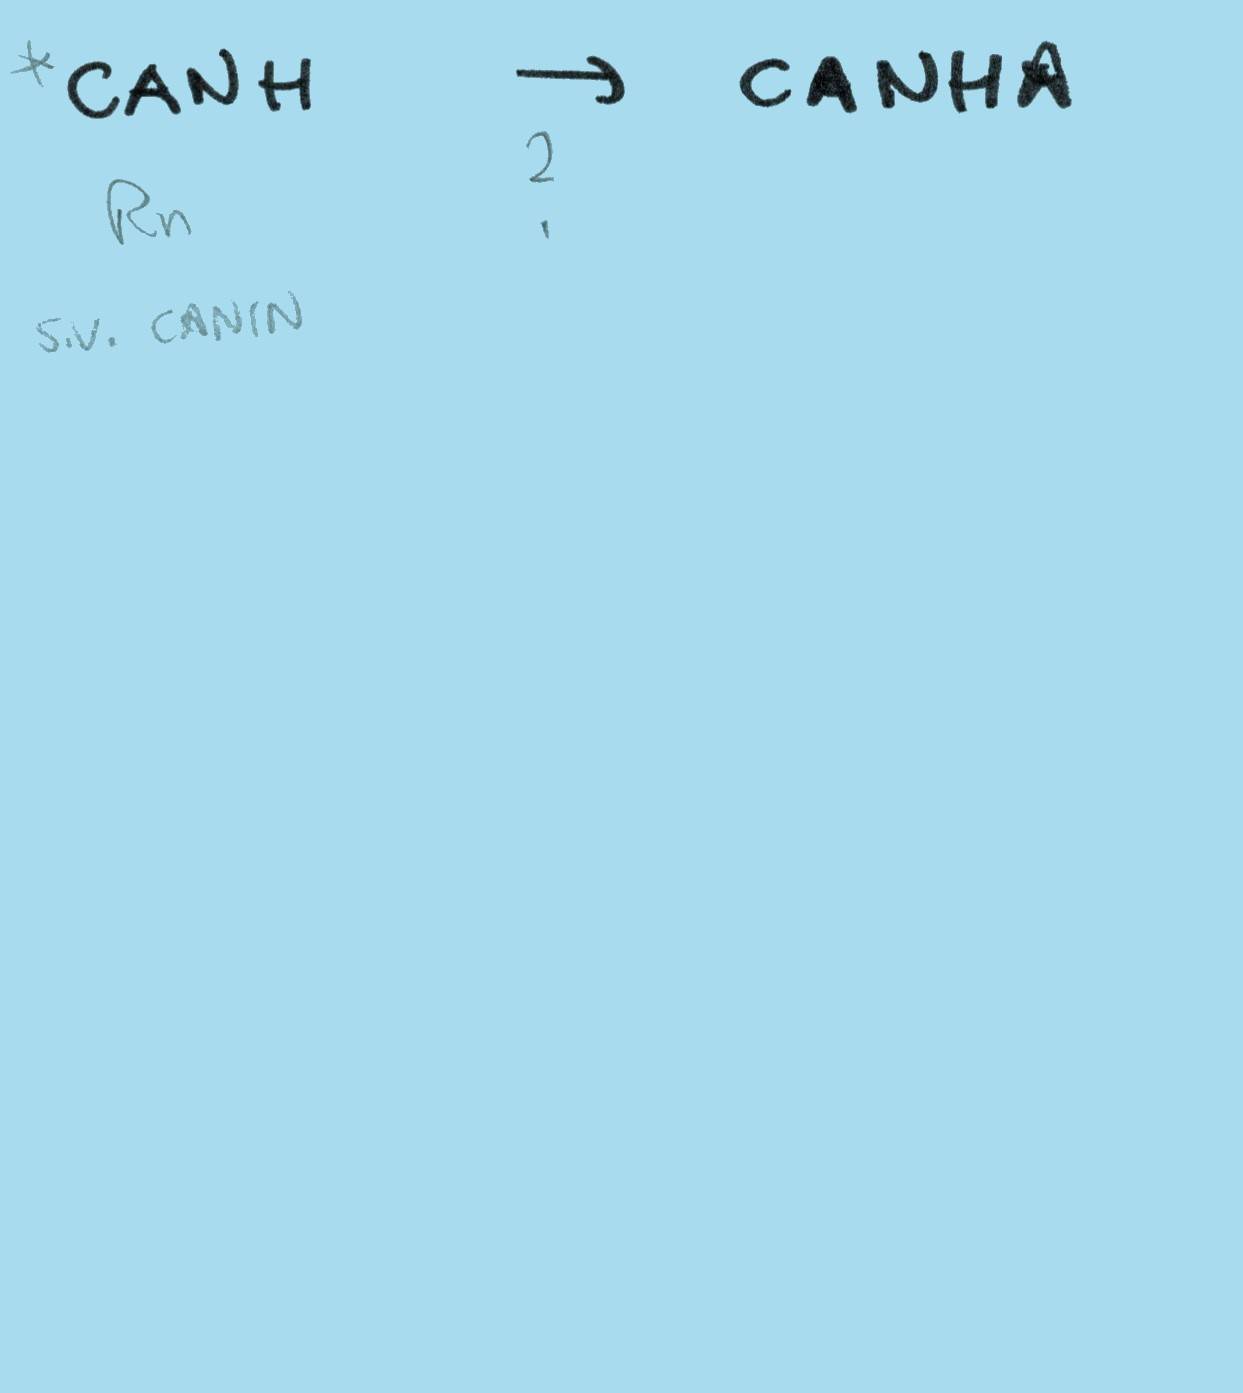 *CANH → CANHA
?
Rn
s.v. CANIN